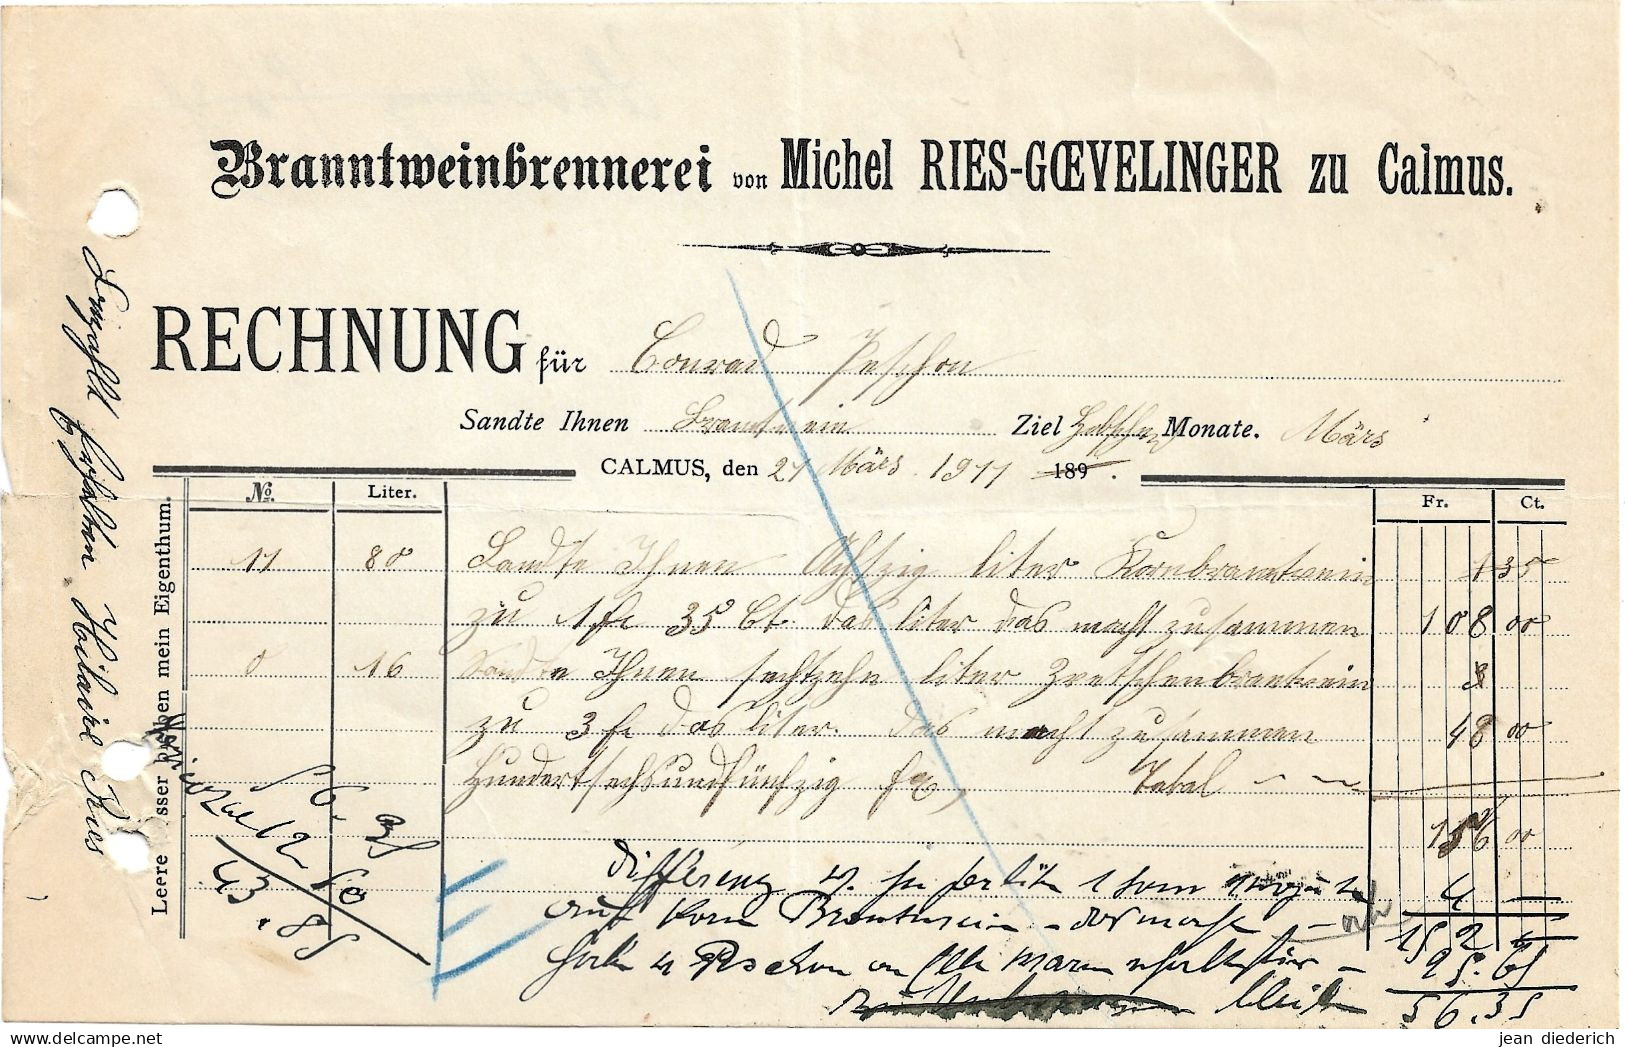 Branntweinbrennerei von Michel RIES-GŒVELINGER zu Calmus.
RECHNUNG für Conrad Peschon
Sandte Ihnen Brantwein Ziel Monate. Märs
CALMUS, den 21 März 1911 189 .
No. Liter. Fr. Ct.
11 80 Sandte Ihnen Achtzig liter Kornbrantwein 1 35
zu 1 fr 35 Ct. das liter das macht zusammen 108 00
0 16 Sandte Ihnen sechtzehn liter Zvetschenbrantwein 3
zu 3 fr das liter. das macht zusammen 48 00
Hundertsechsundfünfzig fr, Total
156 00
Differenz
4 —
auf Korn Brantwein
152
Peschon
95.65
bleibt 56.35
56.35
12.50
43.85
Leere Fässer bleiben mein Eigenthum.
Bezahlt erhalten Hilaire Ries
jean diederich